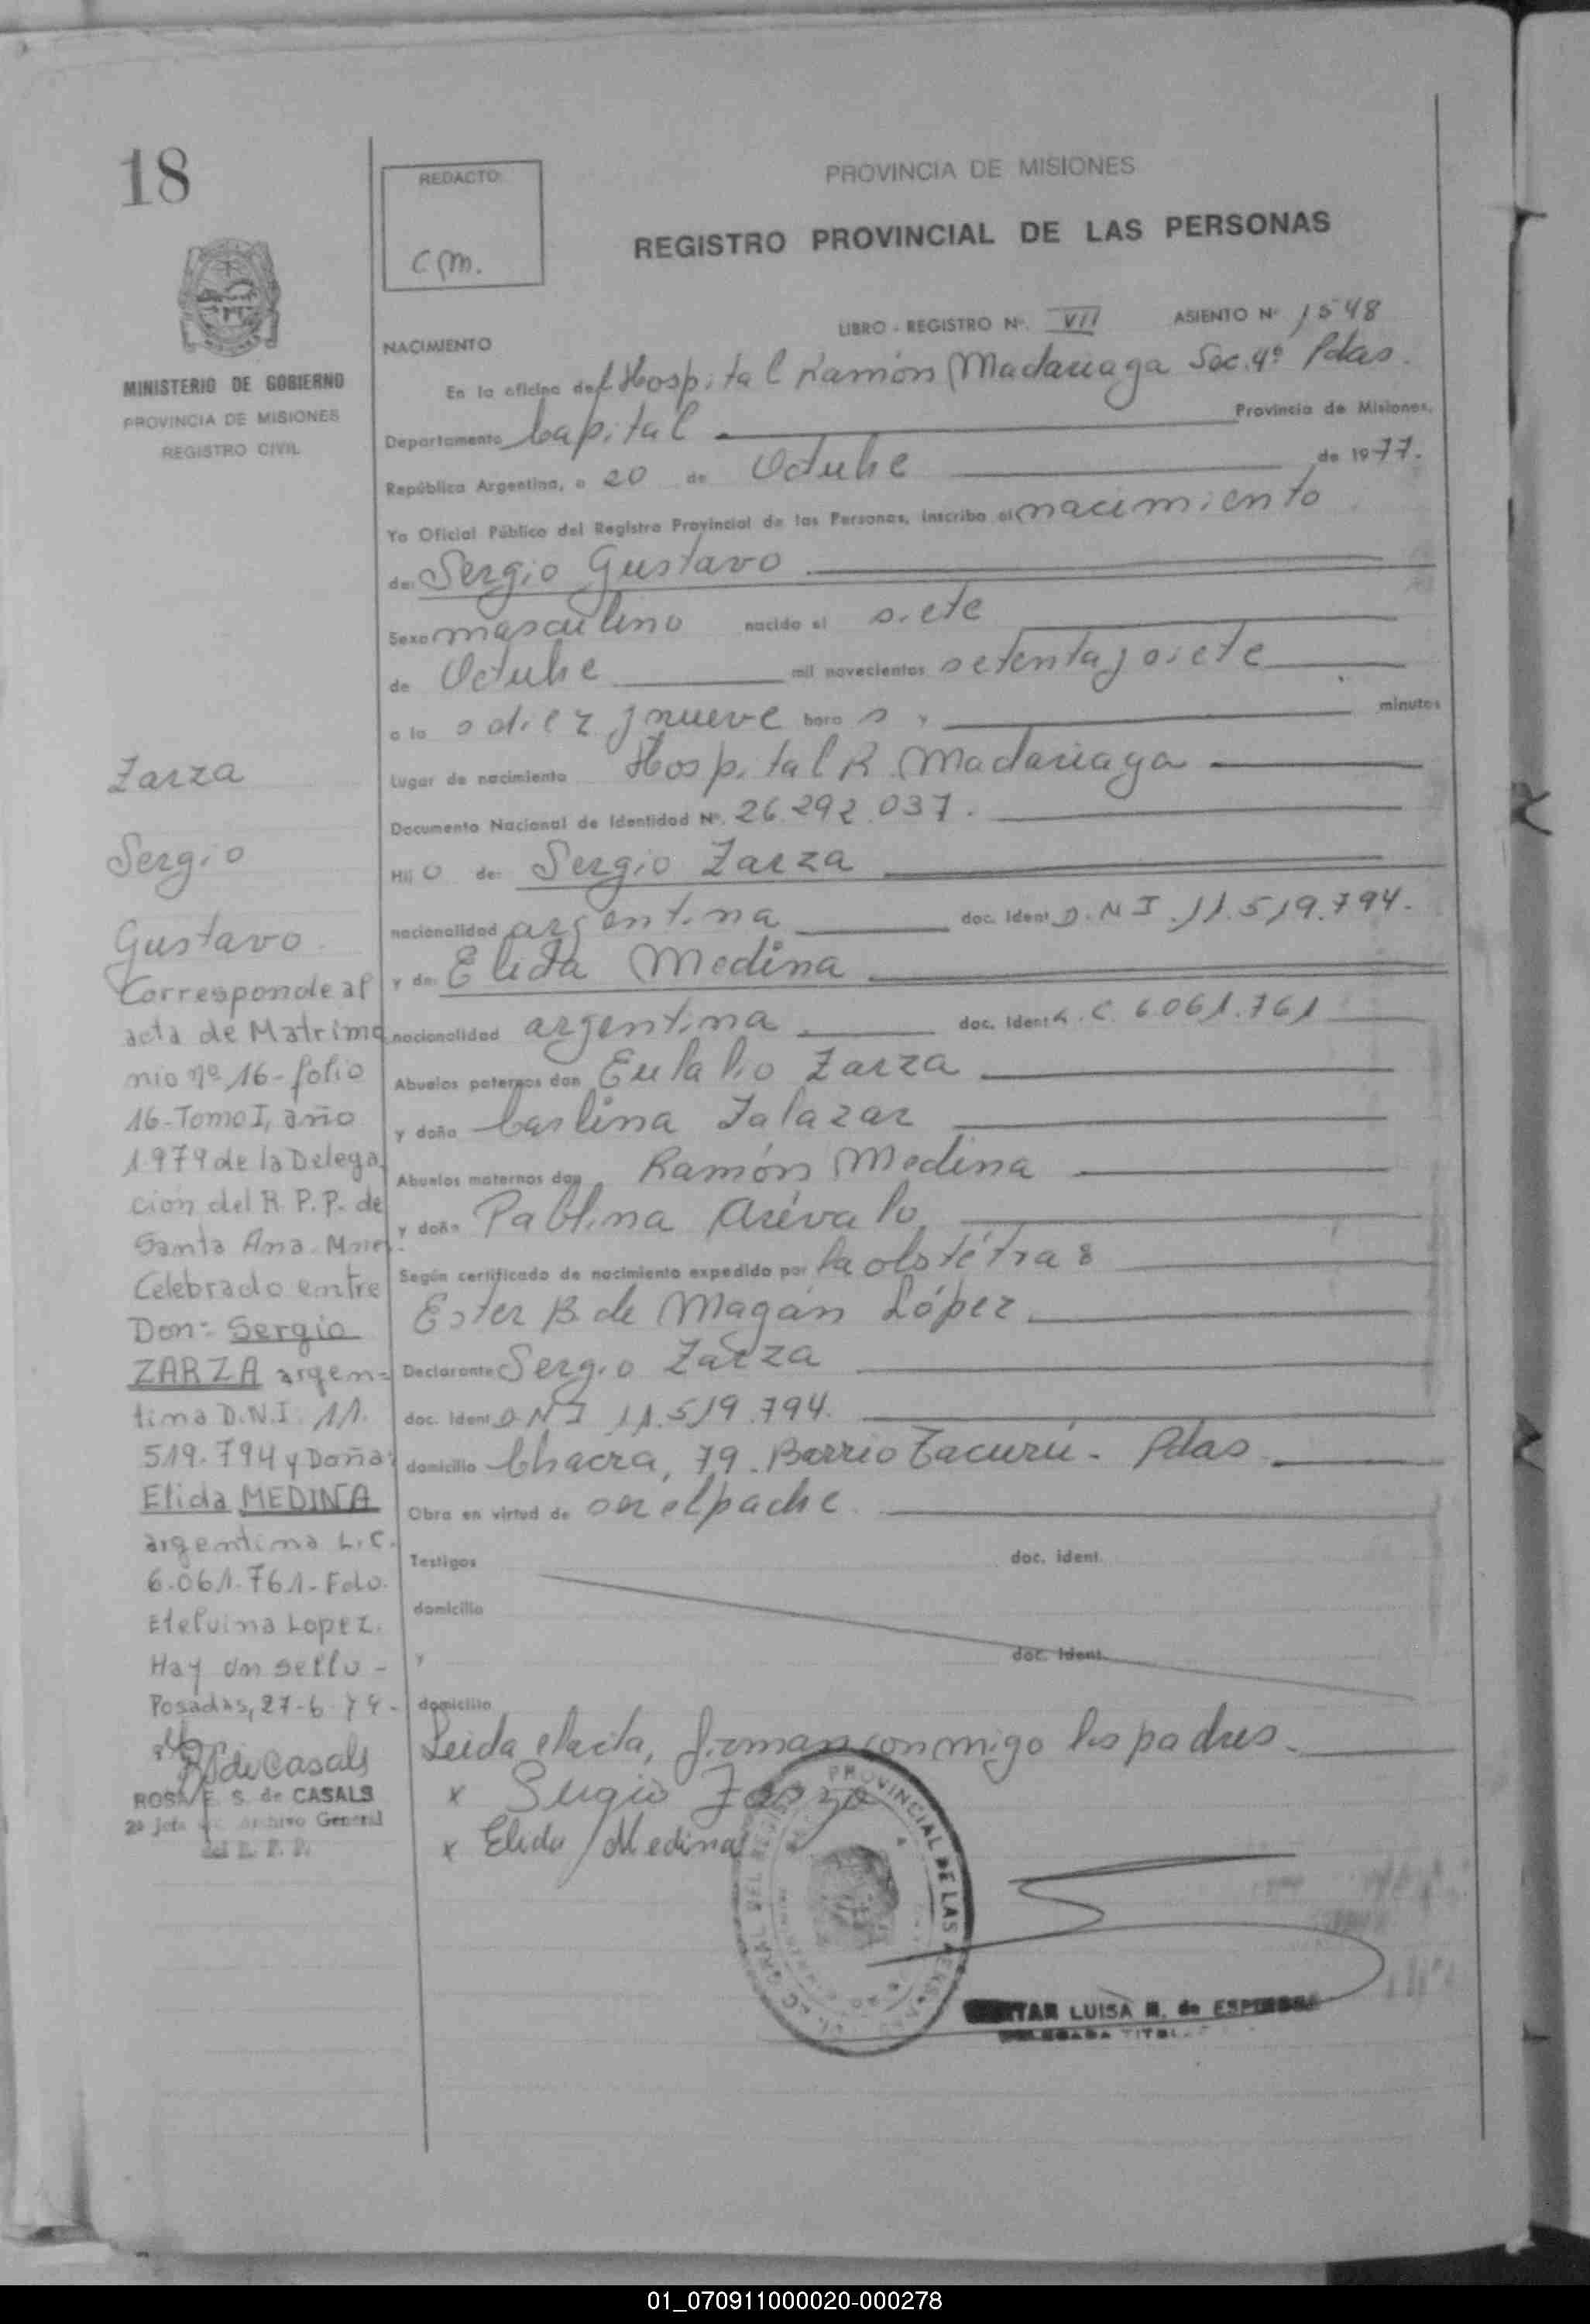 18
REDACTO
C.M.
PROVINCIA DE MISIONES
REGISTRO PROVINCIAL DE LAS PERSONAS
MINISTERIO DE GOBIERNO
PROVINCIA DE MISIONES
REGISTRO CIVIL
LIBRO - REGISTRO Nº. VII ASIENTO Nº 1548
NACIMIENTO
En la oficina del Hospital Ramón Madariaga Sec. 4º Pdas.
Departamento Capital Provincia de Misiones,
República Argentina, a 20 de Octubre de 1977.
Yo Oficial Público del Registro Provincial de las Personas, inscribo el nacimiento
de: Sergio Gustavo
Sexo masculino nacido el siete
de Octubre mil novecientos setenta y siete
a la s diez y nueve hora s y minutos
Lugar de nacimiento Hospital R. Madariaga
Documento Nacional de Identidad Nº. 26.292.037.
Hij o de: Sergio Zarza
nacionalidad argentina doc. Ident. D.N.I. 11.519.794.
y de: Elida Medina
nacionalidad argentina doc. Ident. L.C. 6.061.761
Abuelos paternos don Eulalio Zarza
y doña Carlina Salazar
Abuelos maternos don Ramón Medina
y doña Pablina Arévalo
Según certificado de nacimiento expedido por la obstétra:
Ester B. de Magán López
Declarante Sergio Zarza
doc. Ident. D.N.I 11.519.794.
domicilio Chacra, 79. Barrio Tacurú - Pdas
Obra en virtud de ser el padre.
Testigos doc. ident.
domicilio
y doc. Ident.
domicilio
Leida el acta, firman conmigo los padres.
x Sergio Zarza
x Elida Medina
PROVINCIAL DE LAS PERS.
LUISA M. de ESPINOSA
DELEGADA TITULAR
Zarza
Sergio
Gustavo.
Corresponde al
acta de Matrimo
nio nº 16 - folio
16 - Tomo I, año
1979 de la Delega
ción del R. P. P. de
Santa Ana - Mnes.
Celebrado entre
Don: Sergio
ZARZA argen=
tino D.N.I. 11.
519.794 y Doña:
Elida MEDINA
argentina L.C.
6.061.761 - Fdo.
Etelvina Lopez.
Hay un sello -
Posadas, 27-6-79 -
de Casals
ROSA E. S. de CASALS
2º Jefe Archivo General
del R. P. P.
01_070911000020-000278